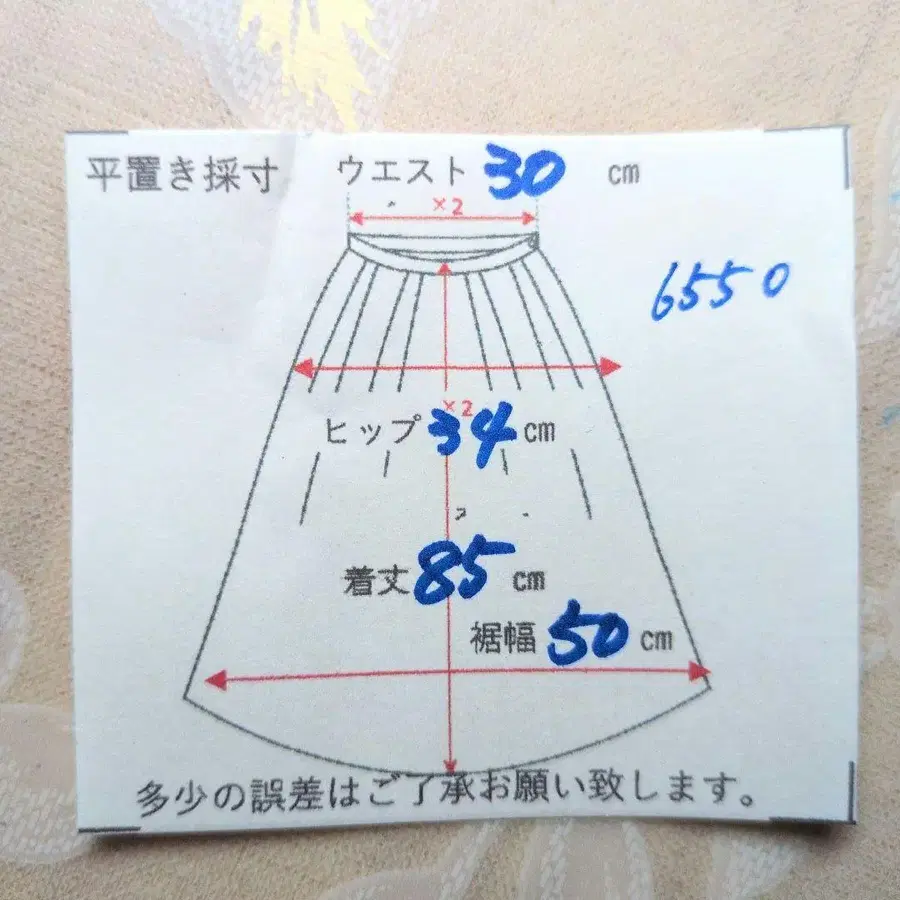 平置き採寸 ウエスト 30 cm
×2
6550
×2
ヒップ 34 cm
着丈 85 cm
裾幅 50 cm
多少の誤差はご了承お願い致します。